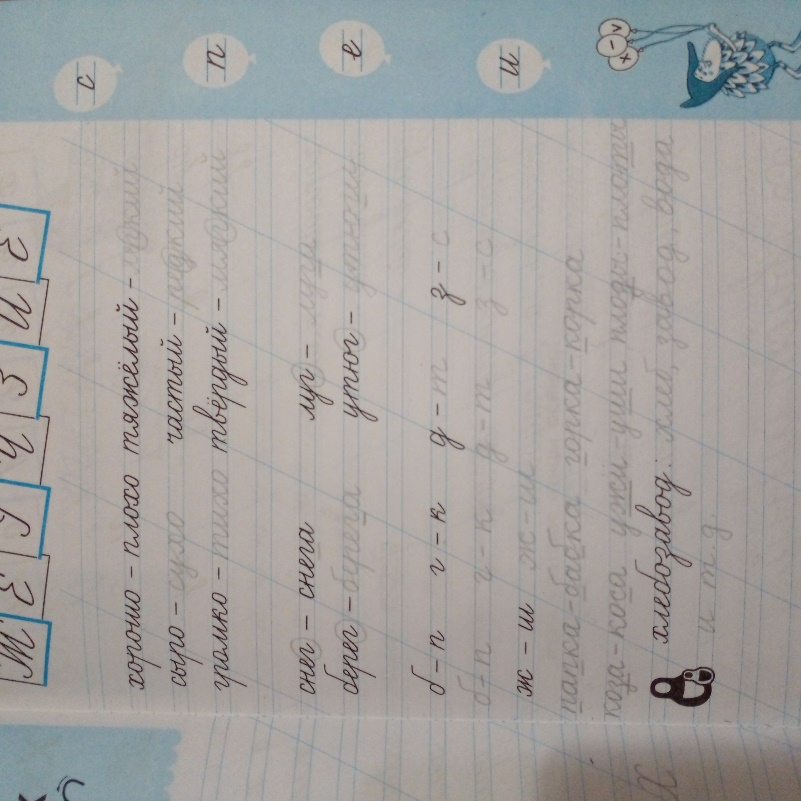 с
хорошо – плохо тяжёлый – лёгкий
сыро – сухо частый – редкий
громко – тихо твёрдый – мягкий
п
снег – снега луг – луга
берег – берега утюг – утюги
е
б – п г – к д – т з – с
б – п г – к д – т з – с
ж – ш ж – ш
и
папка-бабка горка-корка
коза-коса ужи-уши плоды-плоты
хлебозавод: хлеб, завод, вода
и т.д